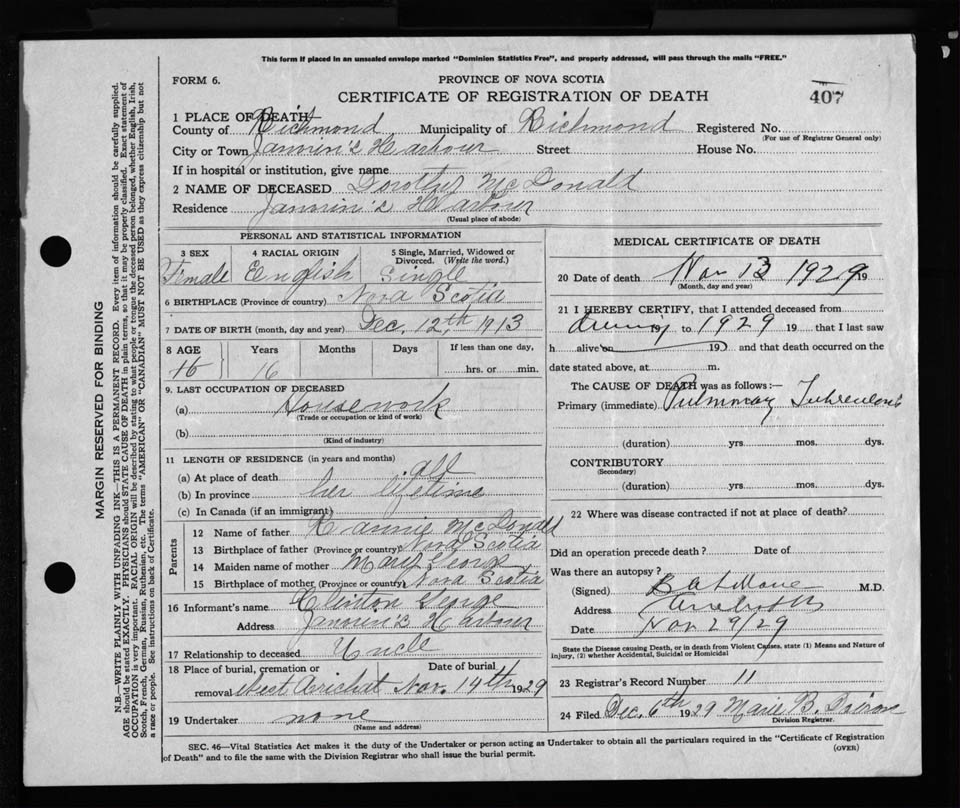 This form if placed in an unsealed envelope marked "Dominion Statistics Free", and properly addressed, will pass through the mails "FREE."
FORM 6.
PROVINCE OF NOVA SCOTIA
CERTIFICATE OF REGISTRATION OF DEATH
407
1 PLACE OF DEATH
County of Richmond Municipality of Richmond Registered No.
(For use of Registrar General only)
City or Town Janvrin's Harbour Street House No.
If in hospital or institution, give name
2 NAME OF DECEASED Dorothy McDonald
Residence Janvrin's Harbour
(Usual place of abode)
PERSONAL AND STATISTICAL INFORMATION
3 SEX 4 RACIAL ORIGIN 5 Single, Married, Widowed or Divorced. (Write the word.)
Female English Single
6 BIRTHPLACE (Province or country) Nova Scotia
7 DATE OF BIRTH (month, day and year) Dec. 12th 1913
8 AGE Years Months Days If less than one day,
16 16 hrs. or min.
9. LAST OCCUPATION OF DECEASED
(a) Housework
(Trade or occupation or kind of work)
(b)
(Kind of industry)
11 LENGTH OF RESIDENCE (in years and months)
(a) At place of death all
(b) In province her lifetime
(c) In Canada (if an immigrant)
Parents
12 Name of father McDonald
13 Birthplace of father (Province or country) Nova Scotia
14 Maiden name of mother Mary George
15 Birthplace of mother (Province or country) Nova Scotia
16 Informant's name Clinton George
Address Janvrin's Harbour
17 Relationship to deceased Uncle
18 Place of burial, cremation or removal West Arichat Date of burial Nov. 14th 1929
19 Undertaker none
(Name and address)
MEDICAL CERTIFICATE OF DEATH
20 Date of death Nov 13 1929 19
(Month, day and year)
21 I HEREBY CERTIFY, that I attended deceased from
during to 1929 19 that I last saw
h alive on 19 and that death occurred on the
date stated above, at m.
The CAUSE OF DEATH was as follows:—
Primary (immediate) Pulmonary Tuberculosis
(duration) yrs. mos. dys.
CONTRIBUTORY
(Secondary)
(duration) yrs. mos. dys.
22 Where was disease contracted if not at place of death?
Did an operation precede death? Date of
Was there an autopsy?
(Signed) M.D.
Address
Date Nov 29/29
State the Disease causing Death, or in death from Violent Causes, state (1) Means and Nature of
Injury, (2) whether Accidental, Suicidal or Homicidal
23 Registrar's Record Number 11
24 Filed Dec. 6th 1929 Marie B.
Division Registrar.
SEC. 46—Vital Statistics Act makes it the duty of the Undertaker or person acting as Undertaker to obtain all the particulars required in the "Certificate of Registration
of Death" and to file the same with the Division Registrar who shall issue the burial permit.
(OVER)
MARGIN RESERVED FOR BINDING
N.B.—WRITE PLAINLY WITH UNFADING INK—THIS IS A PERMANENT RECORD. Every item of information should be carefully supplied.
AGE should be stated EXACTLY. PHYSICIANS should STATE CAUSE OF DEATH in plain terms, so that it may be properly classified. Exact statement of
OCCUPATION is very important. RACIAL ORIGIN will be described by stating to what people or tongue the deceased person belonged, whether English, Irish,
Scotch, French, German, Russian, Ruthenian, etc. The terms "AMERICAN" or "CANADIAN" MUST NOT BE USED as they express citizenship but not
a race or people. See instructions on back of Certificate.